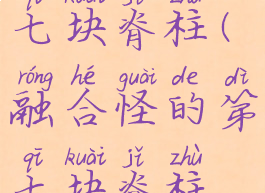 qī kuài jǐ zhù
七块脊柱(
róng hé guài de dì
融合怪的第
qī kuài jǐ zhù
七块脊柱